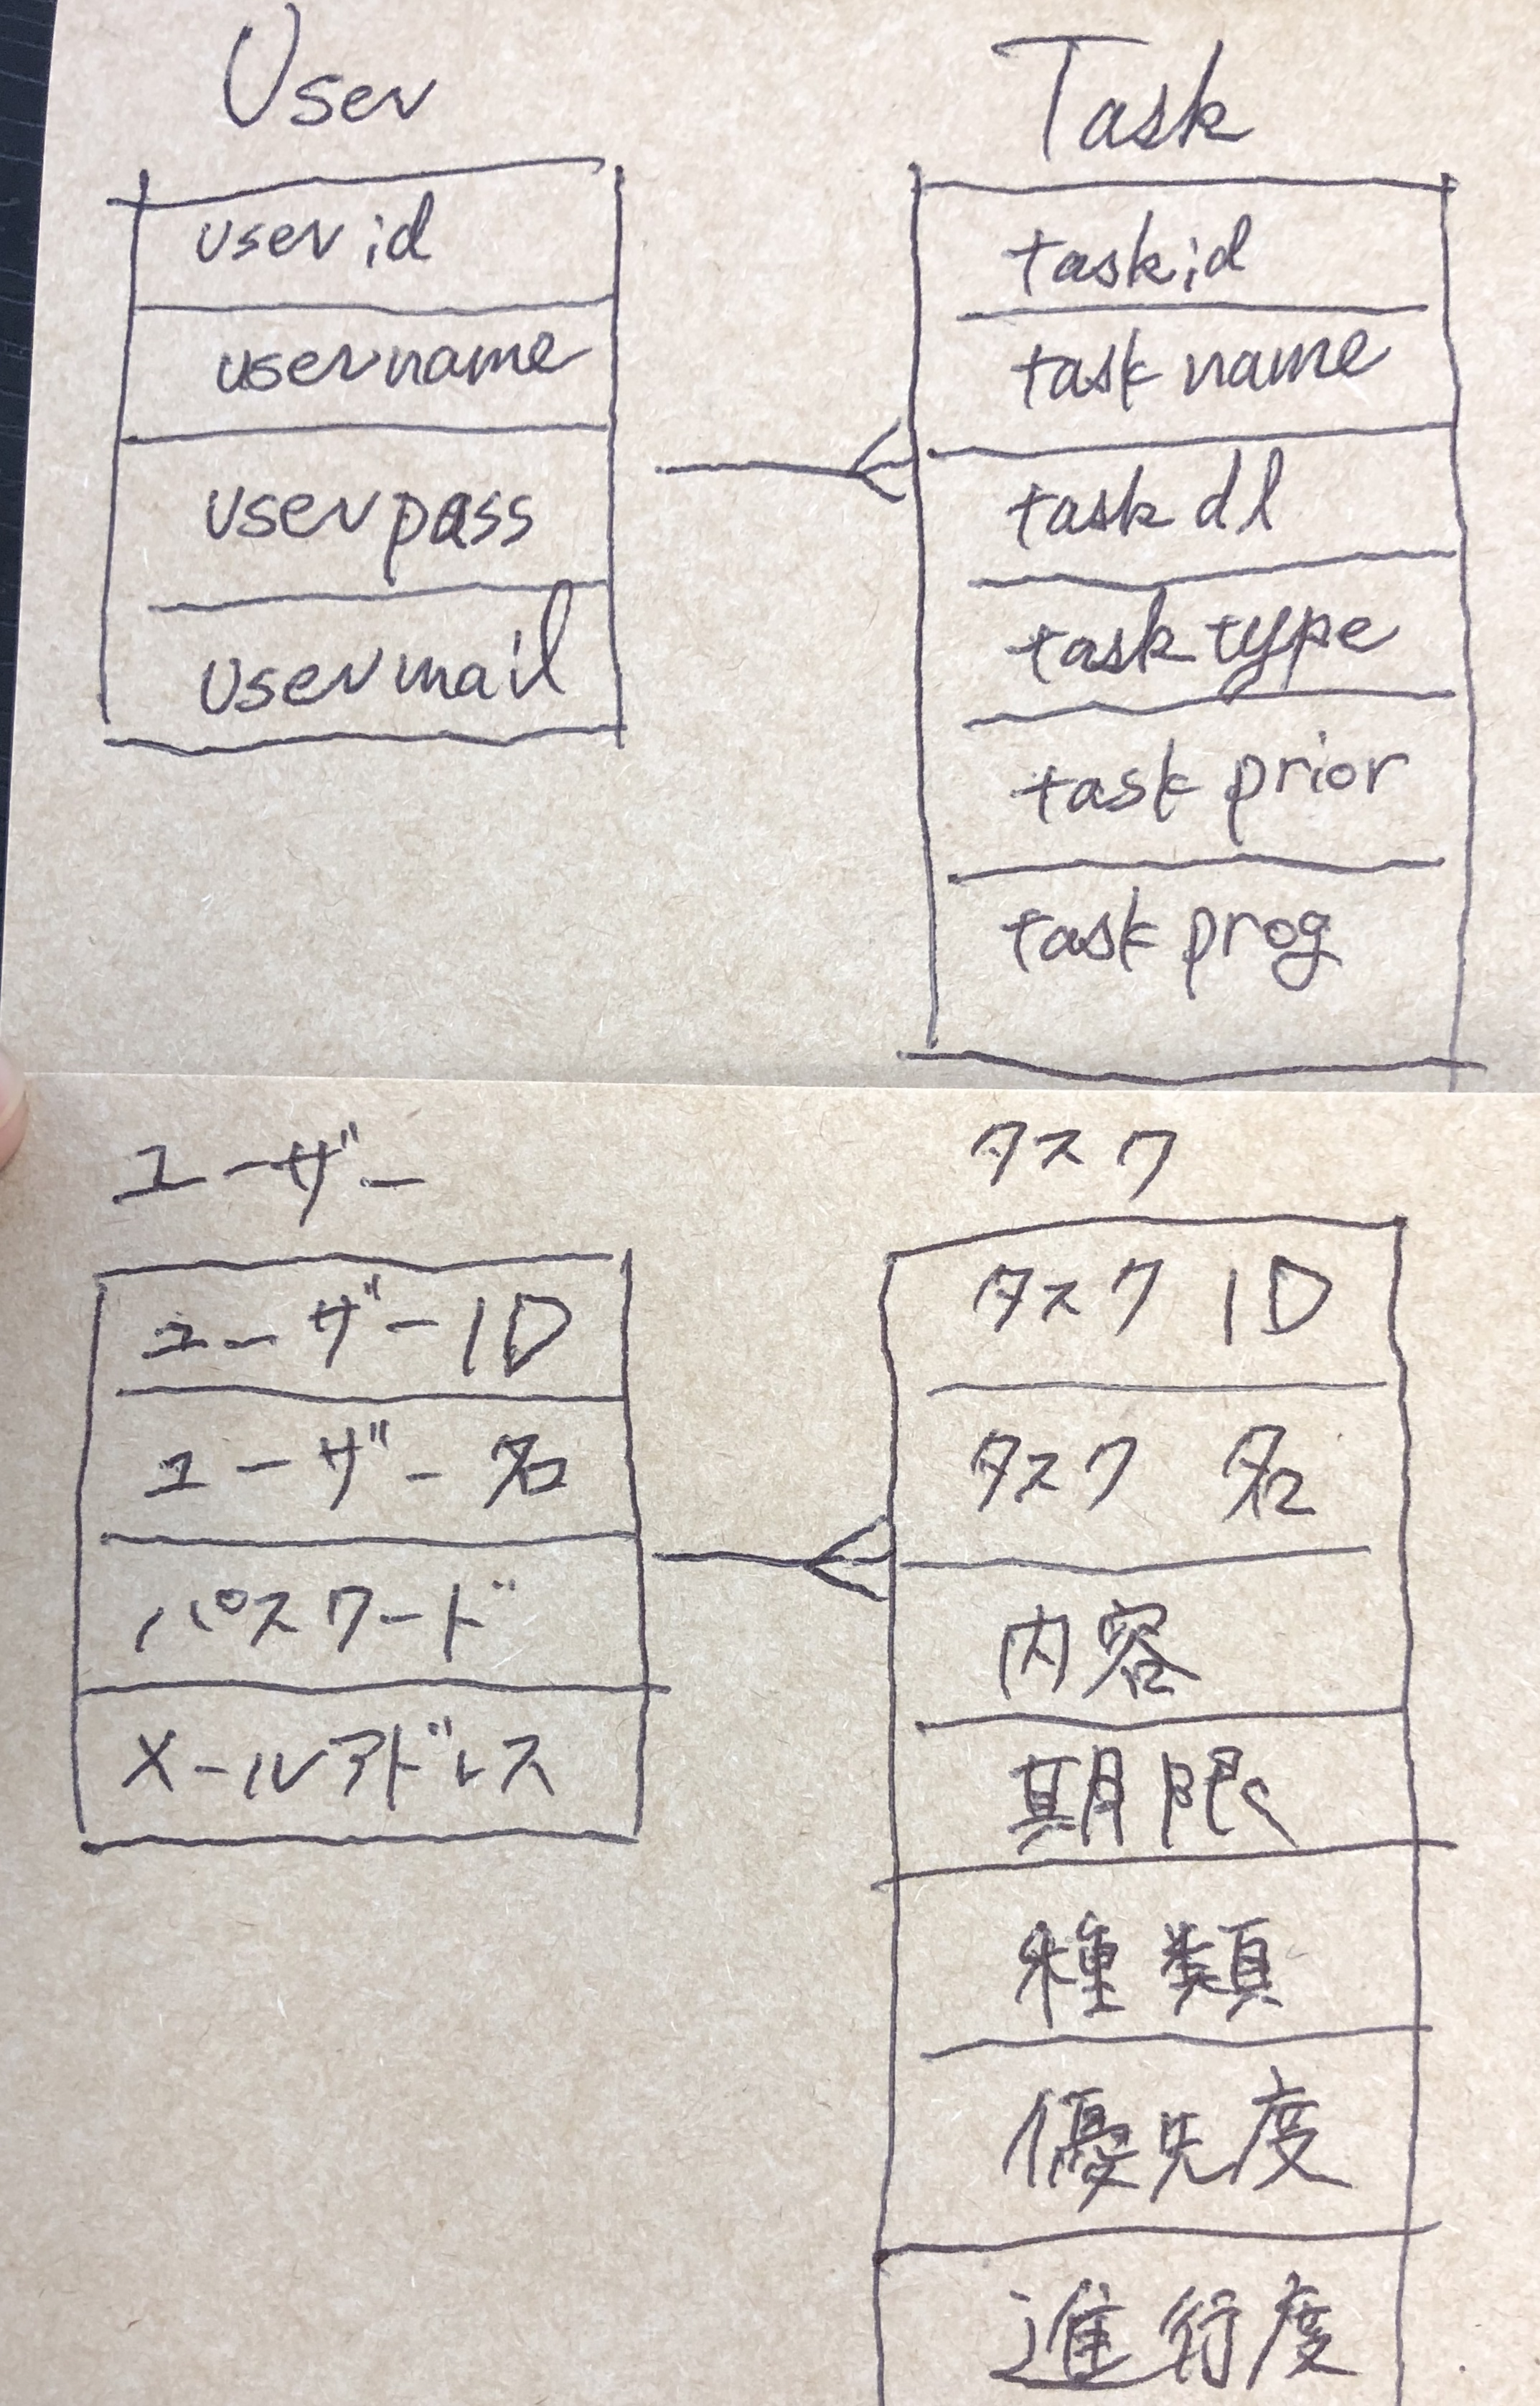 User
user id
user name
user pass
user mail
Task
task id
task name
task dl
task type
task prior
task prog
ユーザー
ユーザーID
ユーザー名
パスワード
メールアドレス
タスク
タスク ID
タスク 名
内容
期限
種類
優先度
進行度